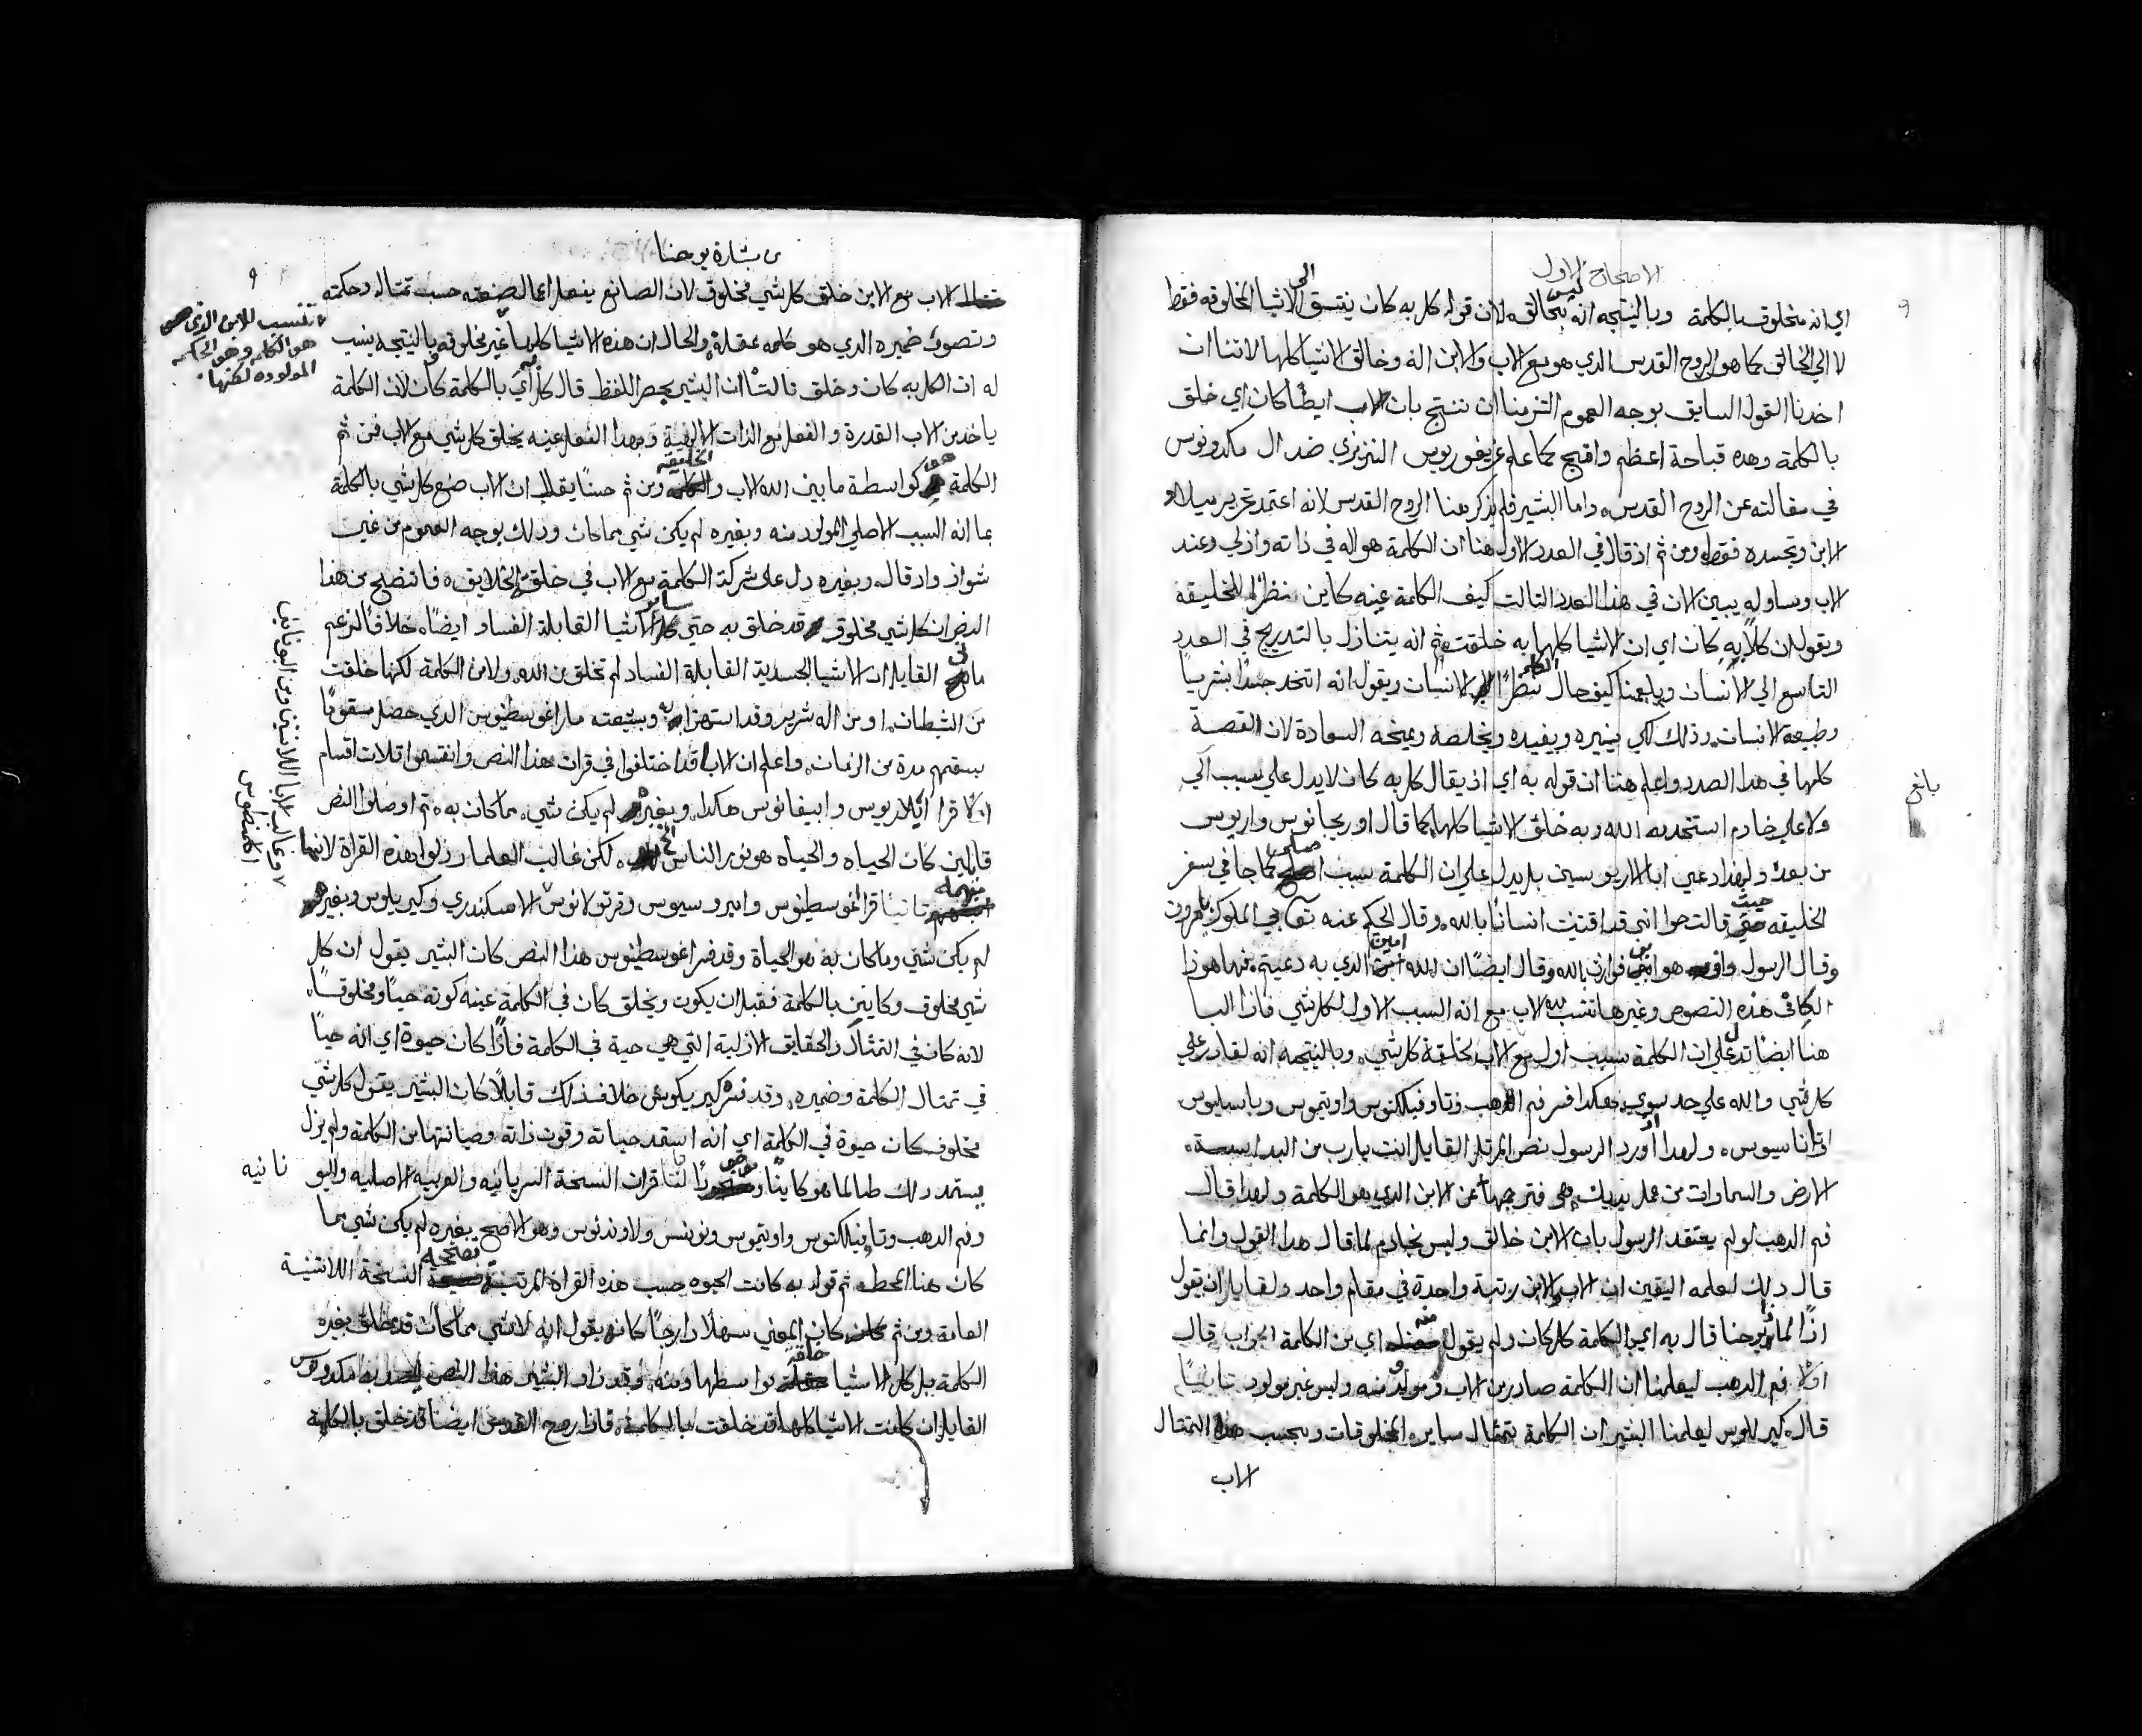 الاصحاح الاول
اي انه مخلوق بالكلمة وبالنتيجه انه ليس بخالق لان قوله كل به كان ينتسق الى الاشيا المخلوقه فقط
لا الي الخالق كما هو الروح القدس الدي هو مع الاب والابن اله وخالق الاشيا كلها لاننا ان
اخدنا القول السابق بوجه العموم التزمنا ان ننتج بان الاب ايضًا كان اي خلق
بالكلمة وهده قباحة اعظم واقبح كما علم غريغوريوس النزينزي ضد ال مكدونوس
في مقالته عن الروح القدس واما البشير فلم يذكر هنا الروح القدس لانه اعتمد تحرير ميلاد
الابن وتجسده فقط ومن ثم اذ قال في العدد الاول هنا ان الكلمة هو اله في ذاته وازلي وعند
الاب ومساو له يبين الان في هذا العدد التالت كيف الكلمة عينه كاين نظرًا للخليقه
ويقول ان كلًا به كان اي ان الاشيا كلها به خلقت ثم انه يتنازل بالتدريج في العدد
التاسع الي الانسان ويعلمنا كيف حال الكلمه نظرًا الانسان ويقول انه اتخد جسدًا بشريًا
وطبيعة الانسان وذلك لكي ينيره ويفيده ويخلصه ويمنحه السعادة لان القصة
كلها في هدا الصدد واعلم هنا ان قوله به اي اذ يقال كل به كان لا يدل علي سبب الي
ولا علي خادم استخدمه الله وبه خالق الاشيا كلها كما قال اوريجانوس واريوس
من بعده ولهذا دعي ابا الاريوسين بل يدل علي ان الكلمة سبب اصلي كما جا في سفر
الخليقه حيث قالت حوا انى قد اقتنيت انسانًا بالله وقال الحكيم عنه تعالي بي الملوك يامرون
وقال الرسول هو ابن فوارث بالله وقال ايضًا ان الله امين الدي به دعيتم فها هوذا
الكل في هذه النصوص وغيرها تنسب به للاب مع انه السبب الاول لكل شي فاذا البا
هنا ايضًا تدل علي ان الكلمة سبب اول مع الاب لخلقة كل شي وبالنتيجه انه لقادر علي
كل شي والله علي حد سوي هكدا فسر فم الدهب وتاوفيلكتوس واوتيموس وباسيليوس
واتاناسيوس ولهدا اورد الرسول نص المرتل القايل انت يارب من البدا اسست
الارض والسماوات من عمل يديك وهي فترجمها عن الابن الدي هو الكلمة ولهدا قال
فم الدهب لو لم يعتقد الرسول بان الابن خالق وليس بخادم لما قال هدا القول وانما
قال دلك لعلمه اليقين ان الاب والابن رتبة واحدة في مقام واحد ولقايل ان يقول
اذًا لماذا يوحنا قال به اي بالكلمة كل كان ولم يقول منه اي من الكلمة الجواب قال
اولًا فم الدهب ليعلمنا ان الكلمة صادر من الاب ومولود منه وليس غير مولود تانيًا
قال كيرللوس ليعلمنا البشير ان الكلمة بتمثال ساير المخلوقات وبحسب هذا التمثال
الاب
بلغ
من بشارة يوحنا
الاب مع الابن خلق كل شي مخلوق لان الصانع يفعل اعمال صنعته حسب تمتاله وحكمته
وتصور ضميره الدي هو كلمه عقله والحال ان هذه الاشيا كلها غير مخلوقه بالنتيجه ينسب
له ان الكل به كان وخلق تالتًا ان البشير بحصر اللفظ قال كل به اي بالكلمة كان لان الكلمة
ياخد من الاب القدرة والفعل مع الذات الالهية وبهدا الفعل عينه يخلق كل شي مع الاب فمن ثم
الكلمة هو كواسطة ما بين الله الاب والخليقه ومن ثم حسنًا يقال ان الاب صنع كل شي بالكلمة
بما انه السبب الاصلي المولود منه وبغيره لم يكن شي مما كان ودلك بوجه العموم من غير
شواذ واد قال وبغيره دل علي شركة الكلمة مع الاب في خلقة الخلايق فاتضح من هذا
النص ان كل شي مخلوق قد خلق به حتي ساير الاشيا القابلة الفساد ايضًا خلافًا لزعم
ماني القايل ان الاشيا الجسدية القابلة الفساد لم تخلق من الله ولا من الكلمة لكنها خلقت
من الشيطان او من اله شرير وقد استهزا به وبشيعته مار اغوسطينوس الدي حصل مسقومًا
بسقمهم مدة من الزمان واعلم ان الابا قد اختلفوا في قرات هذا النص وانقسموا تلات اقسام
اولًا قرا ايلاريوس وابيفانوس هكدا وبغيره لم يكن شي مما كان به ثم اوصلوا النص
قايلين كان الحياه والحياه هو نور الناس الخ لكن غالب العلما رذلوا هذه القراة لانها
منهمله تانيًا قرا اغوسطينوس وامبروسيوس وقرتولانوس الاسكندري وكيريلوس وبغيره
لم يكن شي وما كان به هو الحياة وقد فسر اغوسطينوس هذا النص كان البشير يقول ان كل
شي مخلوق وكاين بالكلمة فقبل ان يكون ويخلق كان في الكلمة عينه كونه حيًا ومخلوقًا
لانه كان في التمثال والحقايق الازلية التي هي حية في الكلمة فاذًا كان حيوة اي انه حيًا
في تمتال الكلمة وضميره وقد فسر كيريلوس خلاف ذلك قايلًا كان البشير يقول كل شي
مخلوق كان حيوة في الكلمة اي انه استمد حياته وقوت ذاته وصيانتها من الكلمة ولم يزل
يستمد دلك طالما هو كاينًا وموجودًا تالتًا قرات النسخة السريانيه والعربيه الاصليه واليو
نانيه
وفم الدهب وتاوفيلكتوس واوتيموس ونونس ولاونديوس وهو الاصح بغيره لم يكن شي مما
كان هنا المحط ثم قوله به كانت الحيوه حسب هذه القراة المرتبة النسخة اللاتنيية
العامة ومن ثم كان المعني سهلًا دارجًا كانه يقول انه لا شي مما كان قد خلق بغيره
الكلمة بل كل الاشيا خلقت بواسطها ومنه وقد زاد البشير هذا النص مكدونوس
القايل ان كانت الاشيا كلها قد خلقت بالكلمة فاذا روح القدس ايضًا قد خلق بالكلمة
٩
تنسب للابن الذي هو
هو الكلمه وهو الحكمه
المولوده لكنها
وغالب الابا اللاتنيين ومن اليونانيين
اكليمنضوس